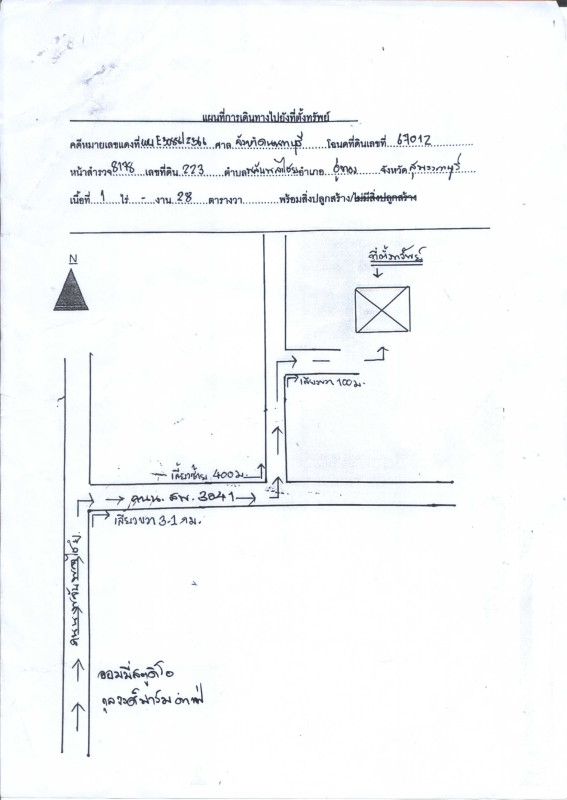 แผนที่การเดินทางไปยังที่ตั้งทรัพย์
คดีหมายเลขแดงที่ ผบE3055/2566 ศาล จังหวัดนนทบุรี โฉนดที่ดินเลขที่ 67012
หน้าสำรวจ 8178 เลขที่ดิน 223 ตำบล จรเข้สามพัน อำเภอ อู่ทอง จังหวัด สุพรรณบุรี
เนื้อที่ 1 ไร่ - งาน 28 ตารางวา พร้อมสิ่งปลูกสร้าง/ไม่มีสิ่งปลูกสร้าง
N
ที่ตั้งทรัพย์
เลี้ยวขวา 100 ม.
เลี้ยวซ้าย 400 ม.
ถนน สพ. 3041
เลี้ยวขวา 3.1 กม.
ออมมี่สตูดิโอ